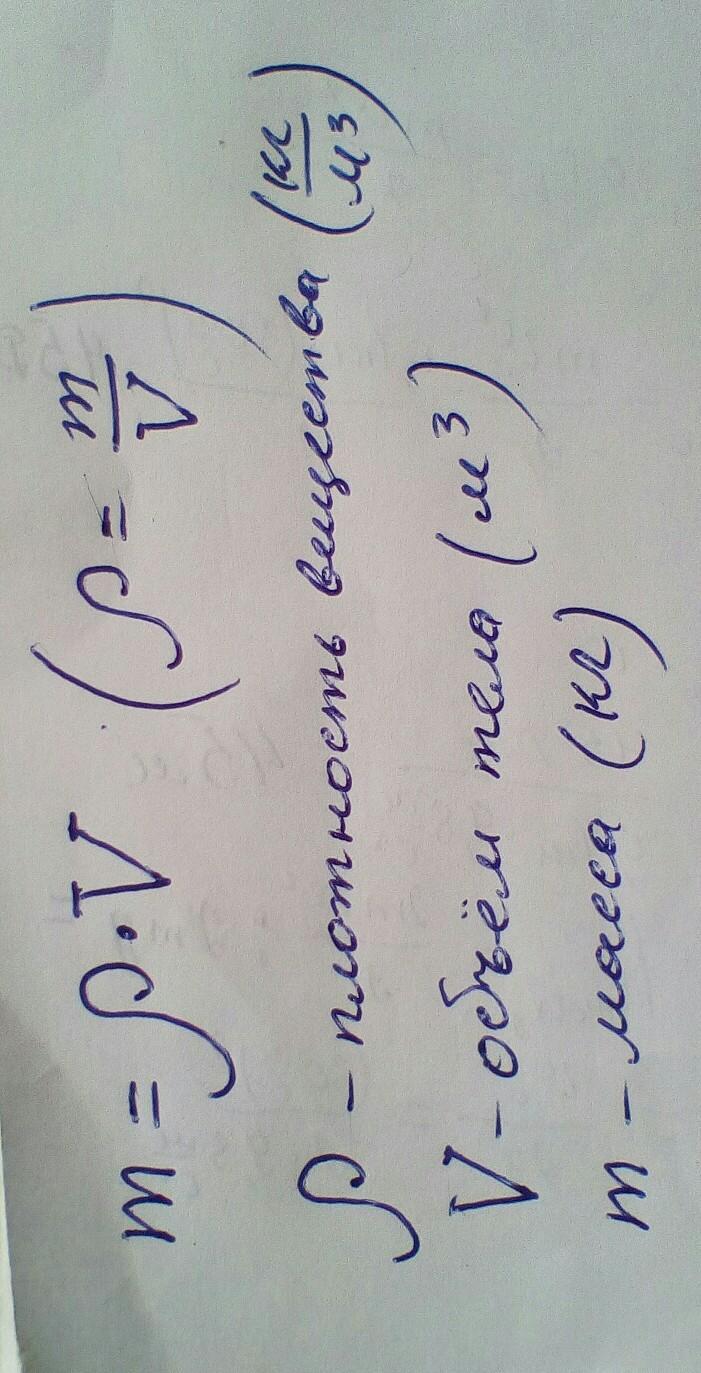 m = ρ · V (ρ = m/V)
ρ – плотность вещества (кг/м³)
V – объём тела (м³)
m – масса (кг)